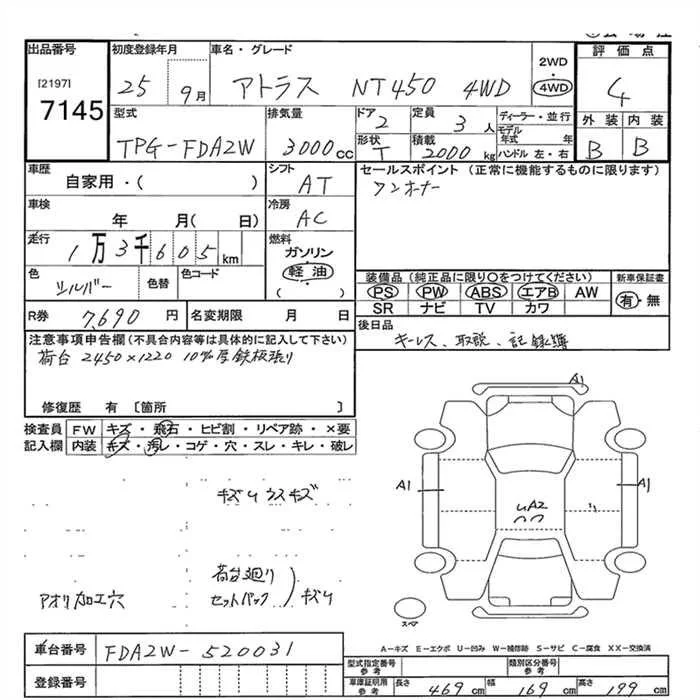 出品番号 初度登録年月 車名・グレード 2WD・4WD 評価点
[2197] 7145 25 9月 アトラス NT450 4WD 4
型式 排気量 ドア 2 定員 3人 ディーラー・並行 外装 内装
TPG-FDA2W 3000cc 形状 T 積載 2000kg モデル年式 年 ハンドル 左・右 B B
車歴 シフト セールスポイント (正常に機能するものに限ります)
自家用・( ) AT ワンオーナー
車検 冷房
年 月(日) AC
走行 燃料
1万3千605km ガソリン
色 色替 色コード 軽油
シルバー ( )
装備品 (純正品に限り○をつけてください) 新車保証書
PS PW ABS エアB AW 有・無
SR ナビ TV カワ
R券 7,690円 名変期限 月 日
後日品
キーレス、取説、記録簿
注意事項申告欄(不具合内容等は具体的に記入して下さい)
荷台 2450×1220 10%厚鉄板張り
修復歴 有 〔箇所 〕
検査員 FW キズ・飛石・ヒビ割・リペア跡・×要
記入欄 内装 キズ・汚レ・コゲ・穴・スレ・キレ・破レ
A1
A1 A1
UA2
キズクウスキズ
荷台廻り
セットバック
キズク
アオリ加工穴
スペア
A-キズ E-エクボ U-凹み W-補修跡 S-サビ C-腐食 XX-交換済
車台番号 FDA2W-520031
登録番号
型式指定番号 参考 類別区分番号 参考
車庫証明用 参考 長さ 469cm 幅 169cm 高さ 199cm